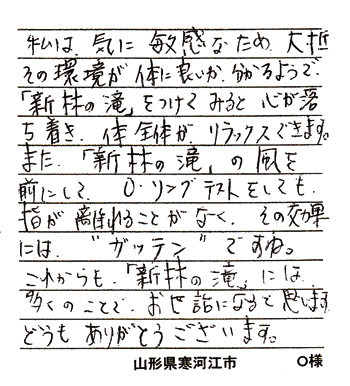 私は、気に敏感なため、大抵
その環境が体に良いか、分かるようで、
「新林の滝」をつけてみると心が落
ち着き、体全体がリラックスできます。
また、「新林の滝」の風を
前にして、O-リングテストをしても、
指が離れることがなく、その効果
には、"ガッテン"ですね。
これからも、「新林の滝」には、
多くのことで、おせ話になると思います。
どうもありがとうございます。
山形県寒河江市 O様